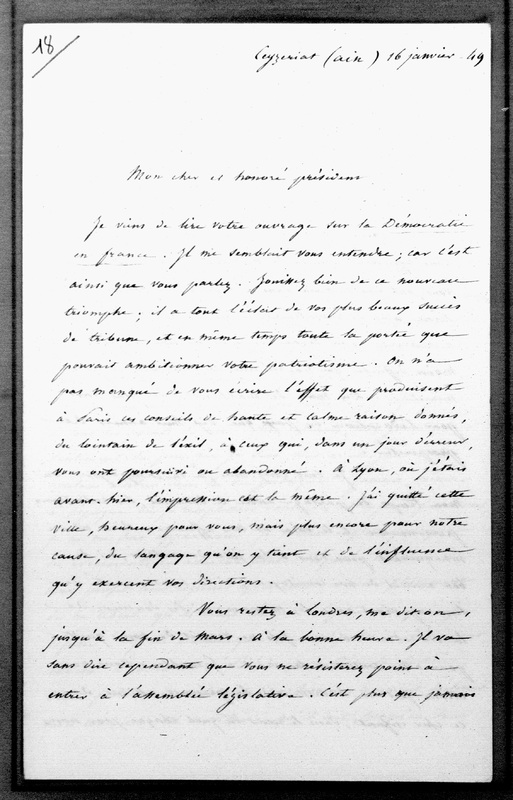 18/
Ceyzeriat (ain) 16 janvier 49
Mon cher et honoré président
Je viens de lire votre ouvrage sur la Démocratie
en france. Il me semblait vous entendre ; car c'est
ainsi que vous parlez. Jouissez bien de ce nouveau
triomphe ; il a tout l'éclat de vos plus beaux succès
de tribune, et en même temps toute la portée que
pouvait ambitionner votre patriotisme. On n'a
pas manqué de vous écrire l'effet que produisent
à Paris ces conseils de haute et calme raison donnés,
du lointain de l'exil, à ceux qui, dans un jour d'erreur,
vous ont poursuivi ou abandonné. À Lyon, où j'étais
avant-hier, l'impression est la même. J'ai quitté cette
ville, heureux pour vous, mais plus encore pour notre
cause, du langage qu'on y tient et de l'influence
qu'y exercent vos directions.
Vous restez à Londres, me dit-on,
jusqu'à la fin de Mars. À la bonne heure. Il va
sans dire cependant que vous ne résisterez point à
entrer à l'assemblée législative. C'est plus que jamais